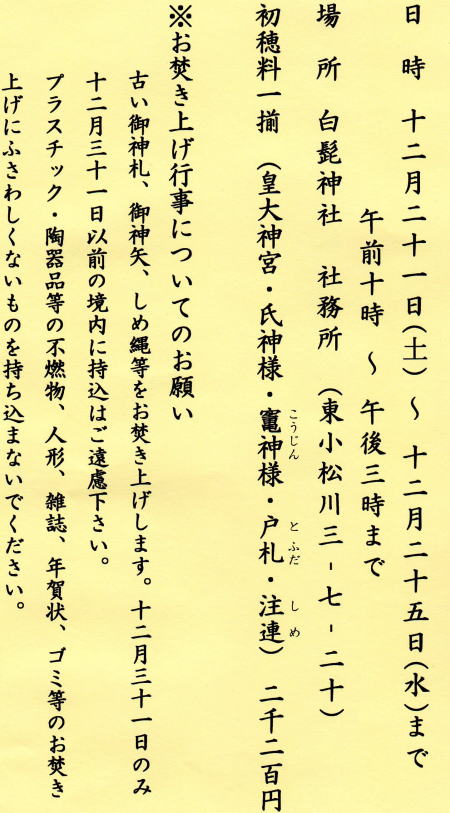 日時 十二月二十一日(土)~ 十二月二十五日(水)まで
午前十時 ~ 午後三時まで
場所 白髭神社 社務所 (東小松川三-七-二十)
初穂料一揃 (皇大神宮・氏神様・竈神様・戸札・注連) 二千二百円
こうじん とふだ しめ
※お焚き上げ行事についてのお願い
古い御神札、御神矢、しめ縄等をお焚き上げします。十二月三十一日のみ
十二月三十一日以前の境内に持込はご遠慮下さい。
プラスチック・陶器品等の不燃物、人形、雑誌、年賀状、ゴミ等のお焚き
上げにふさわしくないものを持ち込まないでください。